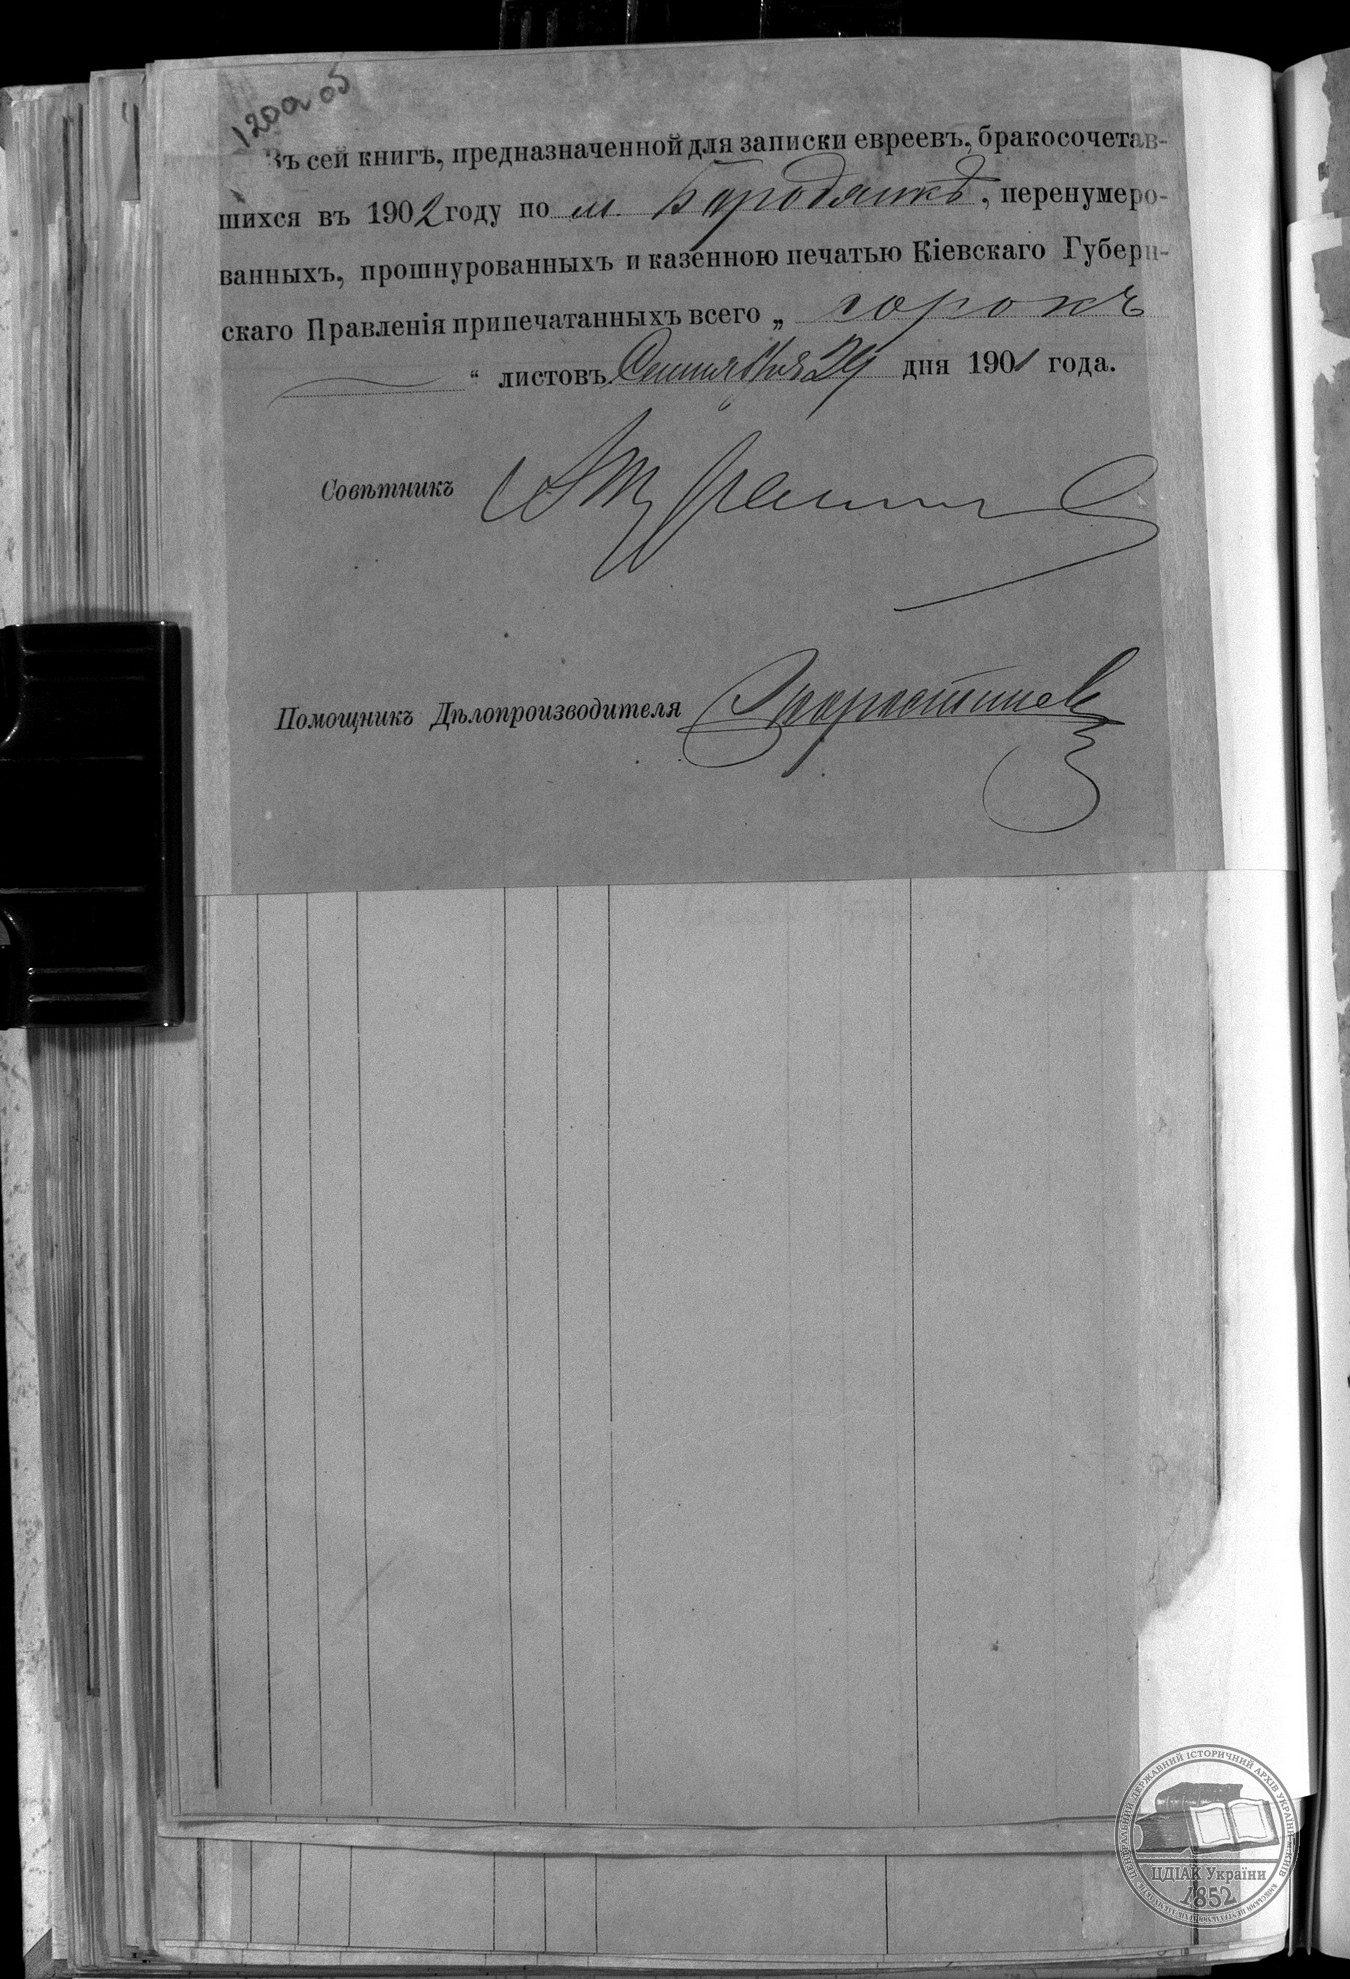 120а об
Въ сей книгѣ, предназначенной для записки евреевъ, бракосочетав-
шихся въ 1902 году по м. Бородянкѣ, перенумеро-
ванныхъ, прошнурованныхъ и казенною печатью Кіевскаго Губерн-
скаго Правленія припечатанныхъ всего „ сорокъ
“ листовъ Сентября 29 дня 1901 года.
Совѣтникъ
Помощникъ Дѣлопроизводителя
ЦЕНТРАЛЬНИЙ ДЕРЖАВНИЙ ІСТОРИЧНИЙ АРХІВ УКРАЇНИ, м. КИЇВ
ЦДІАК України
1852